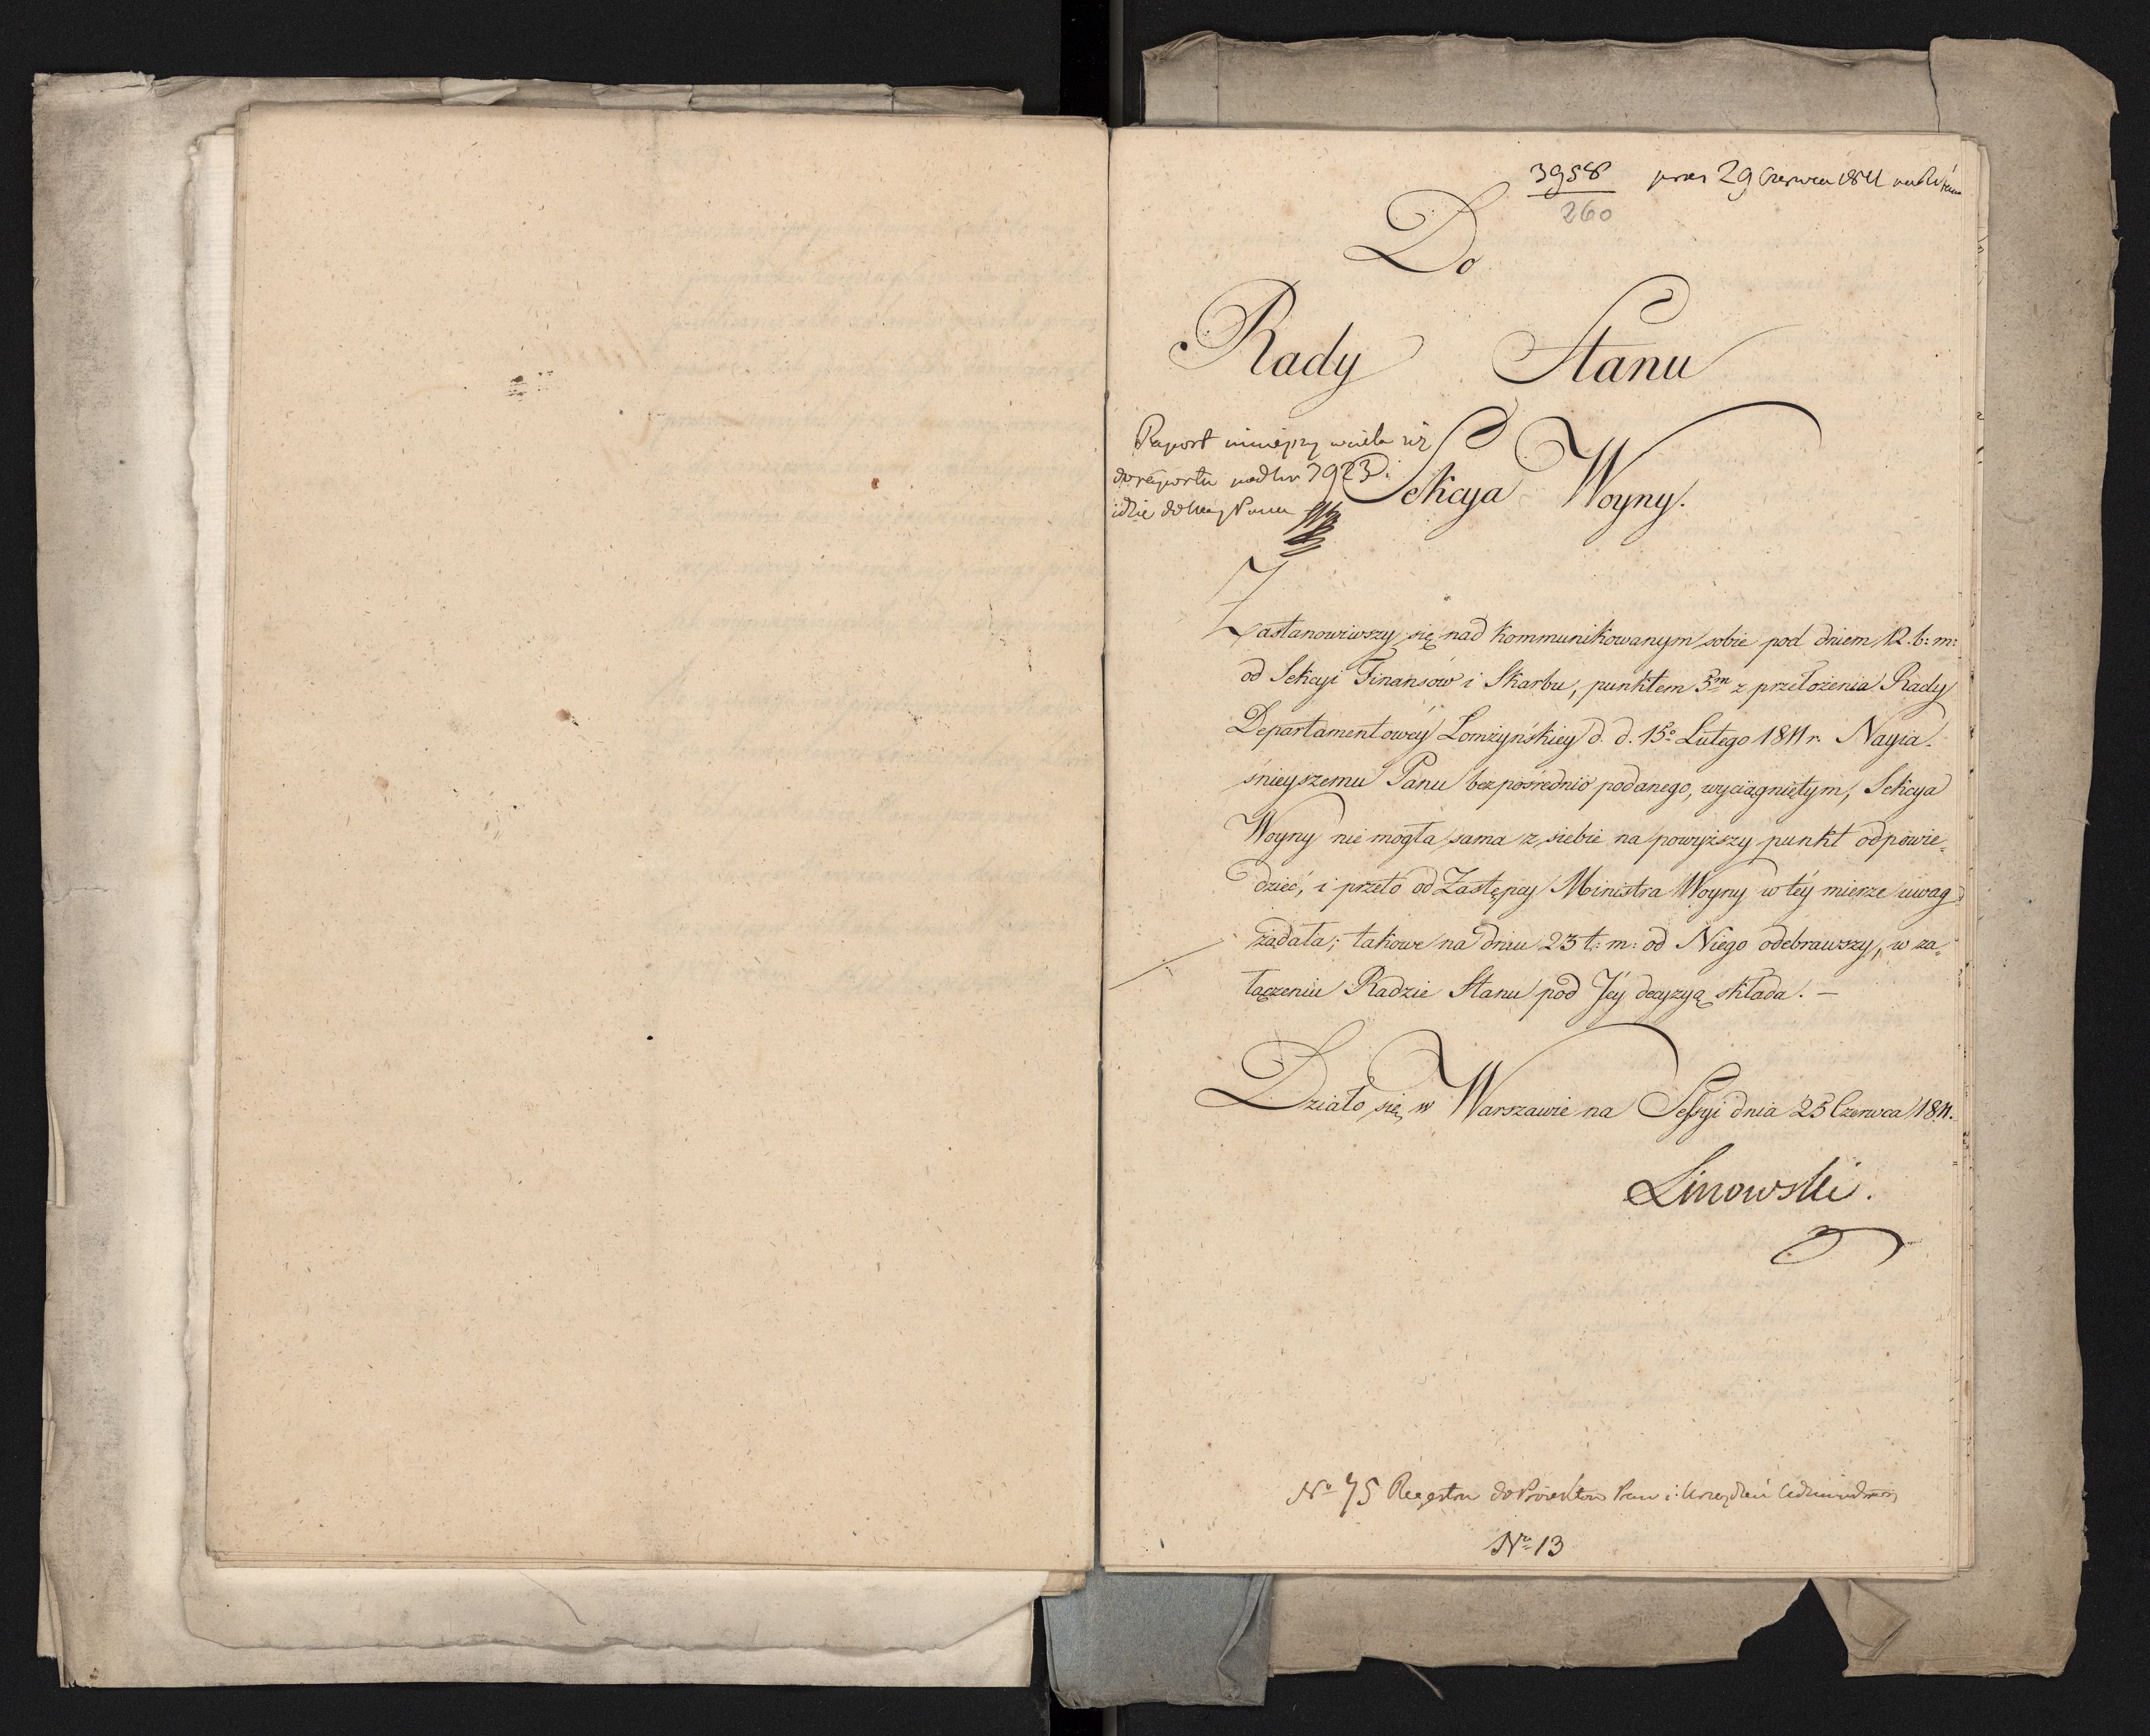 3958 prs 29 Czerwca 1811
260
Do
Rady Stanu
Raport niniejszy wciela się
do raportu pod Nr 3923.
idzie do
Sekcya Woyny.
Zastanowiwszy się nad kommunikowanym sobie pod dniem 12. b: m:
od Sekcyi Finansów i Skarbu, punktem 5m z przełożenia Rady
Departamentowéy Łomżyńskiey d. d. 15o Lutego 1811 r. Nayia-
śnieyszemu Panu bezpośrednio podanego, wyciągniętym, Sekcya
Woyny nie mogła sama z siebie na powyższy punkt odpowie-
dzieć, i przeto od Zastępcy Ministra Woyny w téy mierze uwag
żądała; takowe na dniu 23 t: m: od Niego odebrawszy, w za-
łączeniu Radzie Stanu pod Jéy decyzyą składa. —
Działo się w Warszawie na Sessyi dnia 25 Czerwca 1811.
Linowski.
No 75 Regestru do Proiektów Praw i Urządzeń
Nro 13